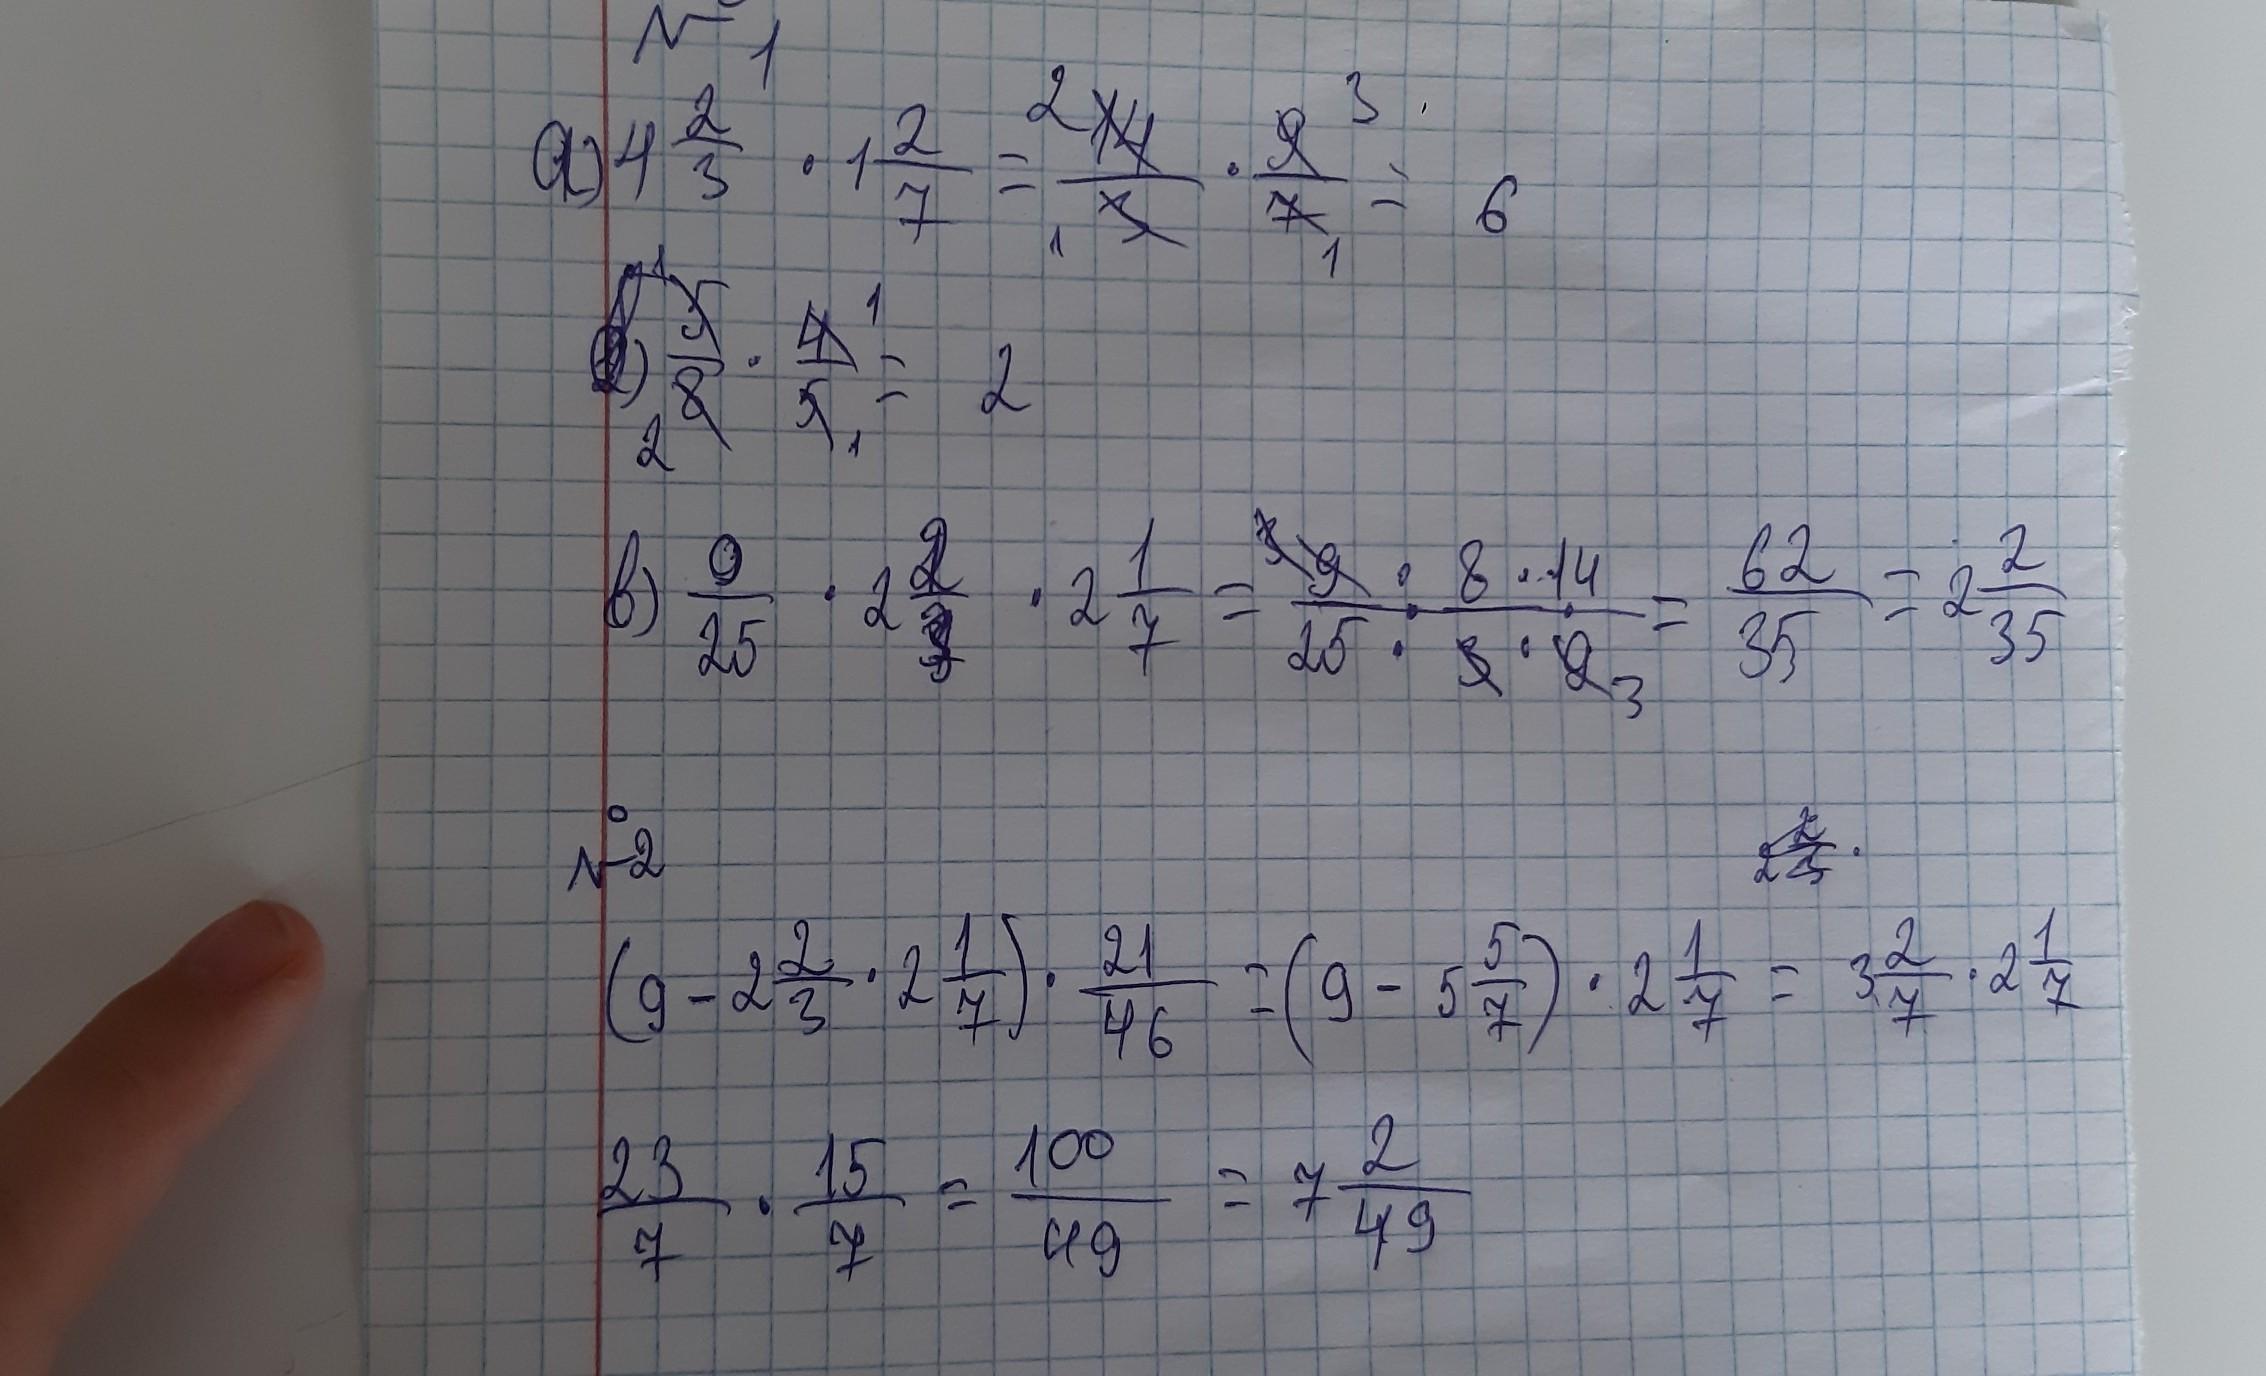 №1
а) 4 2/3 · 1 2/7 = 14/3 · 9/7 = 6
2 3 1 1
б) 5/8 · 4/5 = 2
1 1 2 1
в) 9/25 · 2 2/3 · 2 1/7 = 9 · 8 · 14 / 25 · 3 · 9 = 62/35 = 2 2/35
3 3
№2
(9 - 2 2/3 · 2 1/7) · 21/46 = (9 - 5 5/7) · 2 1/7 = 3 2/7 · 2 1/7
23/7 · 15/7 = 100/49 = 7 2/49